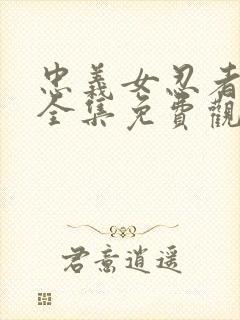 忠義女忍者
全集免費觀
君意逍遥